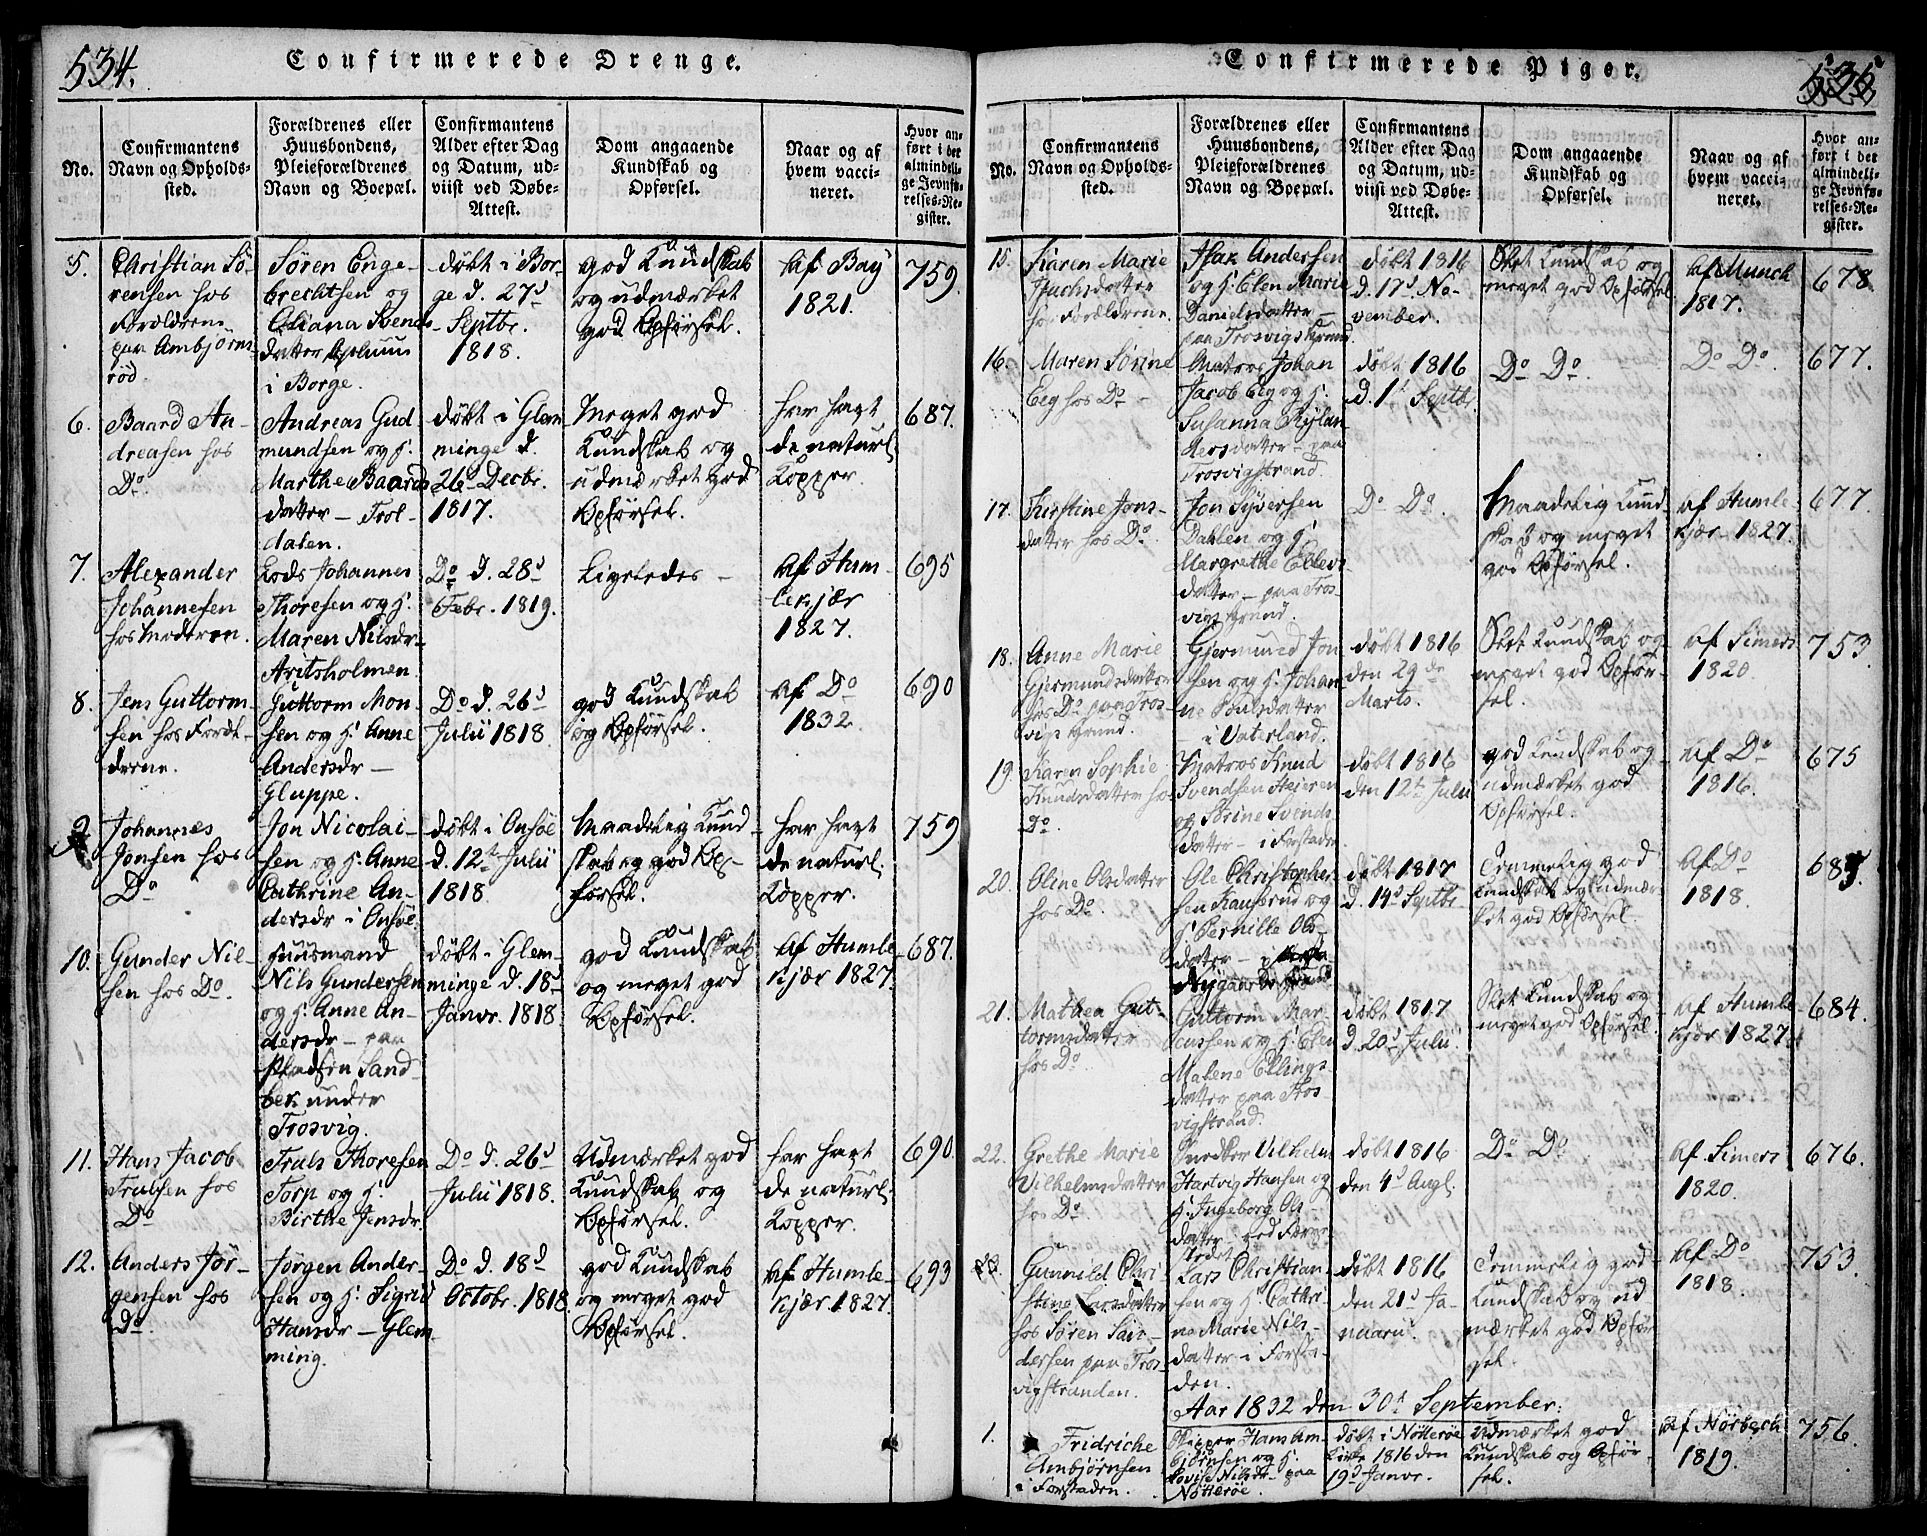 534.
Confirmerede Drenge.
No.
Confirmantens
Navn og Opholds-
sted.
Forældrenes eller
Huusbondens,
Pleieforældrenes
Navn og Boepæl.
Confirmantens
Alder efter Dag
og Datum, ud-
viist ved Døbe-
Attest.
Dom angaaende
Kundskab og
Opførsel.
Naar og af
hvem vacci-
neret.
Hvor an-
ført i det
almindeli-
ge Jevnfø-
relses-Re-
gister.
5.
Christian Sö-
rensen hos
Forældrene
paa Ambjörns-
röd.
Søren Enge-
brechtsen og
Eliana Svends-
datter
i Borge.
døbt i Bor-
ge d. 27d
Septbr.
1818.
god Kundskab
og udmærket
god Opførsel.
Af Bay
1821.
759.
6.
Baard An-
dreasen hos
Do.
Andreas Gud
mundsen og H.
Marthe Baards
datter – Trol-
dalen.
døbt i Glem
minge d.
26d Decbr.
1817.
Meget god
Kundskab og
udmærket god
Opførsel.
har havt
de naturl.
Kopper.
687.
7.
Alexander
Johannesen
hos Moderen.
Lods Johannes
Thoresen og H.
Maren Nilsdr.
Aritsholmen
Do d. 28d
Febr. 1819.
Ligeledes –
Af Hum-
lekjær
1827.
695
8.
Jens Guttorm-
sen hos Foræl-
derne.
Guttorm Mon-
sen og H. Anne
Andersdr –
Gluppe.
Do d. 26d
Julii 1818.
god Kundskab
og Opførsel.
Af Do
1832.
690
9.
Johannes
Jonsen hos
Do
Jon Nicolai-
sen og H. Anne
Cathrine An-
dersdr i Onsöe
døbt i Onsöe
d. 12te Julii
1818.
Maadelig Kund-
skab og god Op-
førsel.
har havt
de naturl.
Kopper.
759
10.
Gunder Nil-
sen hos Do.
Huusmand
Nils Gundersen
og H. Anne An-
dersdr – paa
Pladsen Sand-
bek under
Trosvig.
døbt i Glem-
minge d. 18d
Janvr. 1818.
god Kundskab
og meget god
Opførsel.
Af Humle
kjær 1827.
687.
11.
Hans Jacob
Trulsen hos
Do
Truls Thoresen
Torp og H.
Birthe Jensdr.
Do d. 26d
Julii 1818.
Udmærket god
Kundskab og
Opførsel.
har havt
de naturl.
Kopper.
690.
12.
Anders Jør-
gensen hos
Do.
Jørgen Ander-
sen og H. Sigrid
Hansdr – Glem
ming.
Do d. 18d
Octobr. 1818.
god Kundskab
og meget god
Opførsel.
Af Humle-
kjær 1827.
693
Confirmerede Piger.
No.
Confirmantens
Navn og Opholds-
sted.
Forældrenes eller
Huusbondens,
Pleieforældrenes
Navn og Boepæl.
Confirmantens
Alder efter Dag
og Datum, ud-
viist ved Døbe-
Attest.
Dom angaaende
Kundskab og
Opførsel.
Naar og af
hvem vacci-
neret.
Hvor an-
ført i det
almindeli-
ge Jevnfø-
relses-Re-
gister.
15.
Karen Marie
Isachsdatter
hos Forældrene.
Isak Andersen
og H. Elen Marie
Danielsdatter –
paa Trosvigstrand.
døbt 1816
d. 17d No-
vember.
Slet Kundskab og
meget god Opførsel
af Munch
1817.
678
16.
Maren Sørine
Eeg hos Do –
Matros Johan
Jacob Eeg og H.
Susanna Rylan
dersdatter – paa
Trosvigstrand.
døbt 1816
d. 1t Septbr.
Do Do.
Do Do.
677.
17.
Kirstine Jons-
datter hos Do.
Jon Syversen
Dahlen og H.
Margrethe Ellevs
datter – paa Tros
vigstrand.
Do Do.
Maadelig Kund
skab og meget
god Opførsel.
af Humle-
kjær 1827.
677.
18.
Anne Marie
Gjermundsdatter
hos Do paa Tros-
vigstrand.
Gjermund Jon
sen og H. Johan-
ne Poulsdatter
– i Vaterland.
døbt 1816
den 29de
Marts.
Slet Kundskab og
meget god Opfør-
sel.
af Simers
1820.
753.
19
Karen Sophie
Knudsdatter hos
Do.
Matros Knud
Svendsen Heieren
og Sörine Svends
datter – i Forstaden.
døbt 1816
den 12te Julii
god Kundskab og
udmærket god
Opførsel.
Af Do
1816.
675
20.
Oline Olsdatter
hos Do.
Ole Christopher
sen Kauserud og
H. Pernille Ols-
datter –
døbt 1817
d. 14d Septbr.
Temmelig god
Kundskab og udmær-
ket god Opførsel.
Af Do
1818.
685.
21.
Mathea Gut-
tormsdatter
hos Do
Guttorm Mar-
cussen og H. Elen
Malene Ellings-
datter paa Tros
vigstrand.
døbt 1817
d. 20d Julii.
Slet Kundskab og
meget god Opførsel.
af Humle-
kjær 1827.
684.
22.
Grethe Marie
Vilhelmsdatter
hos Do
Snedker Vilhelm
Hartvig Hansen og
H. Ingeborg Ols-
datter – ved Færge
stedet.
døbt 1816
den 4d Augl.
Do Do.
Af Simers
1820.
676.
23.
Gunnild Chri-
stine Larsdatter
hos Søren San-
dersen paa Tros-
vigstranden.
Lars Christian-
sen og H. Cathr-
ne Marie Nils-
datter i Forsta-
den.
døbt 1816
den 21d Ja-
nuarii.
Temmelig god
Kundskab og ud
mærket god Opfør
sel.
Af Do
1818.
753.
Aar 1832 den 30d September:
1.
Fridriche
Ambjörnsen
i Forstaden.
Skipper Hans Am-
björnsen og H.
Lovise Nilsdr – paa
Nötteröe.
døbt i Nötteröe
Kirke 1816 den
19d Janvr.
Udmærket god
Kundskab og Opfør-
sel.
Af Nörbech
1819.
756.